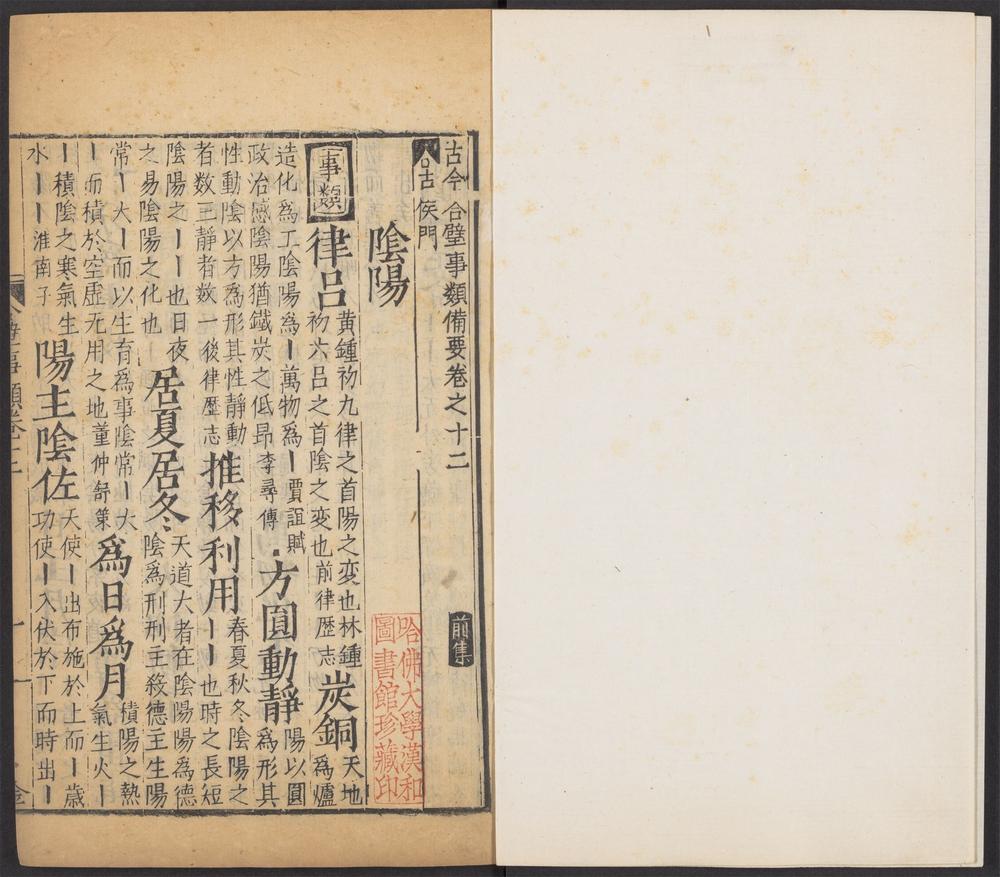 古今合璧事類備要卷之十二
占侯門
前集
陰陽
哈佛大學漢和
圖書館珍藏印
事類
律呂
黄鍾初九律之首陽之变也林鍾
初六吕之首陰之变也前律歴志
炭銅
天地
爲爐
造化爲工陰陽爲丨萬物爲丨賈誼賦
政治感陰陽猶鐵炭之低昂李尋傳
方圓動靜
陽以圓
爲形其
性動陰以方爲形其性靜動
者数三靜者数一後律歴志
推移利用
春夏秋冬陰陽之
丨丨也時之長短
陰陽之丨丨也日夜
之易陰陽之化也
居夏居冬
天道大者在陰陽陽爲德
陰爲刑刑主殺德主生陽
常丨大丨而以生育爲事陰常丨大
丨而積於空虛无用之地董仲舒策
爲日爲月
積陽之熱
氣生火丨
丨積陰之寒氣生
水丨丨淮南子
陽主陰佐
天使丨出布施於上而丨歲
功使丨入伏於下而時出丨